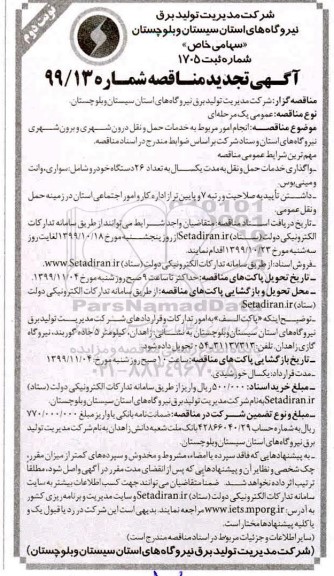 نوبت دوم
شرکت مدیریت تولید برق
نیروگاه‌های استان سیستان و بلوچستان
«سهامی خاص»
شماره ثبت ۱۷۰۵
آگهی تجدید مناقصه شماره ۹۹/۱۳
مناقصه گزار: شرکت مدیریت تولید برق نیروگاه‌های استان سیستان و بلوچستان.
نوع مناقصه: عمومی یک مرحله‌ای
موضوع مناقصه: انجام امور مربوط به خدمات حمل و نقل درون شهری و برون شهری
نیروگاه‌های استان و ستاد شرکت بر اساس ضوابط مندرج در اسناد مناقصه.
مهم‌ترین شرایط عمومی مناقصه
ـ واگذاری خدمات حمل و نقل به مدت یکسال به تعداد ۲۶ دستگاه خودرو شامل: سواری، وانت
و مینی‌بوس.
ـ داشتن تأییدیه صلاحیت و رتبه ۷ و پایین‌تر از اداره کار و امور اجتماعی استان در زمینه حمل
و نقل عمومی.
ـ تاریخ دریافت اسناد مناقصه: متقاضیان واجد شرایط می‌توانند از طریق سامانه تدارکات
الکترونیکی دولت (ستاد) Setadiran.ir از روز پنجشنبه مورخ ۱۳۹۹/۱۰/۱۸ لغایت روز
سه‌شنبه مورخ ۱۳۹۹/۱۰/۲۳ اقدام نمایند.
ـ فروش اسناد: از طریق سامانه تدارکات الکترونیکی دولت (ستاد) www.Setadiran.ir.
ـ تاریخ تحویل پاکت‌های مناقصه: حداکثر تا ساعت ۹ صبح روز شنبه مورخ ۱۳۹۹/۱۱/۰۴
ـ محل تحویل و بازگشایی پاکت‌های مناقصه: از طریق سامانه تدارکات الکترونیکی دولت
(ستاد) Setadiran.ir
ـ توضیح اینکه «پاکت الف» به امور تدارکات و قراردادهای شرکت مدیریت تولید برق
نیروگاه‌های استان سیستان و بلوچستان به نشانی: زاهدان، کیلومتر ۵ جاده گوربند، نیروگاه
گازی زاهدان تلفن: ۳۱۱۳۷۳۱۳-۰۵۴ تحویل داده شود.
ـ تاریخ بازگشایی پاکت‌های مناقصه: ساعت ۱۰ صبح روز شنبه مورخ ۱۳۹۹/۱۱/۰۴
ـ مدت قرارداد: یکسال خورشیدی.
ـ مبلغ خرید اسناد: ۵۰۰/۰۰۰ ریال واریز از طریق سامانه تدارکات الکترونیکی دولت (ستاد)
Setadiran.ir به نام شرکت مدیریت تولید برق نیروگاه‌های استان سیستان و بلوچستان.
ـ مبلغ و نوع تضمین شرکت در مناقصه: ضمانت‌نامه بانکی یا واریز مبلغ ۷۷۰/۰۰۰/۰۰۰
ریال به شماره حساب ۴۲۸۶۶۰۴۰۲۹ بانک ملت شعبه دانش زاهدان به نام شرکت مدیریت تولید
برق نیروگاه‌های استان سیستان و بلوچستان.
ـ به پیشنهادهایی که فاقد سپرده یا امضاء، مشروط و مخدوش و سپرده‌های کمتر از میزان مقرر،
چک شخصی و نظایر آن و پیشنهادهایی که پس از انقضای مدت مقرر در آگهی واصل شود، مطلقا
ترتیب اثر داده نخواهد شد. ضمنا متقاضیان می‌توانند جهت کسب اطلاعات بیشتر به سایت
سامانه تدارکات الکترونیکی دولت (ستاد) Setadiran.ir و سایت مدیریت و برنامه‌ریزی کشور
به آدرس: www.iets.mporg.ir مراجعه نمایند. بدیهی است این شرکت در رد یا قبول یک و
یا کلیه پیشنهادها مختار است.
(سایر اطلاعات و جزئیات مربوط در اسناد مناقصه مندرج است)
(شرکت مدیریت تولید برق نیروگاه‌های استان سیستان و بلوچستان)
ParsNamadData
۰۲۱-۸۸۳۴۹۶۷۰